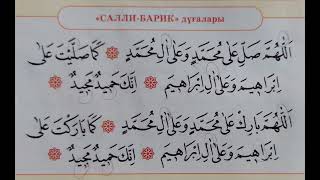 «САЛЛИ-БАРИК» дұғалары
اَللّٰهُمَّ صَلِّ عَلٰى مُحَمَّدٍ وَعَلٰى اٰلِ مُحَمَّدٍ ❁ كَمَا صَلَّيْتَ عَلٰى
اِبْرَاهِيمَ وَعَلٰى اٰلِ اِبْرَاهِيمَ ❁ اِنَّكَ حَمِيدٌ مَجِيدٌ ❁
اَللّٰهُمَّ بَارِكْ عَلٰى مُحَمَّدٍ وَعَلٰى اٰلِ مُحَمَّدٍ ❁ كَمَا بَارَكْتَ عَلٰى
اِبْرَاهِيمَ وَعَلٰى اٰلِ اِبْرَاهِيمَ ❁ اِنَّكَ حَمِيدٌ مَجِيدٌ ❁